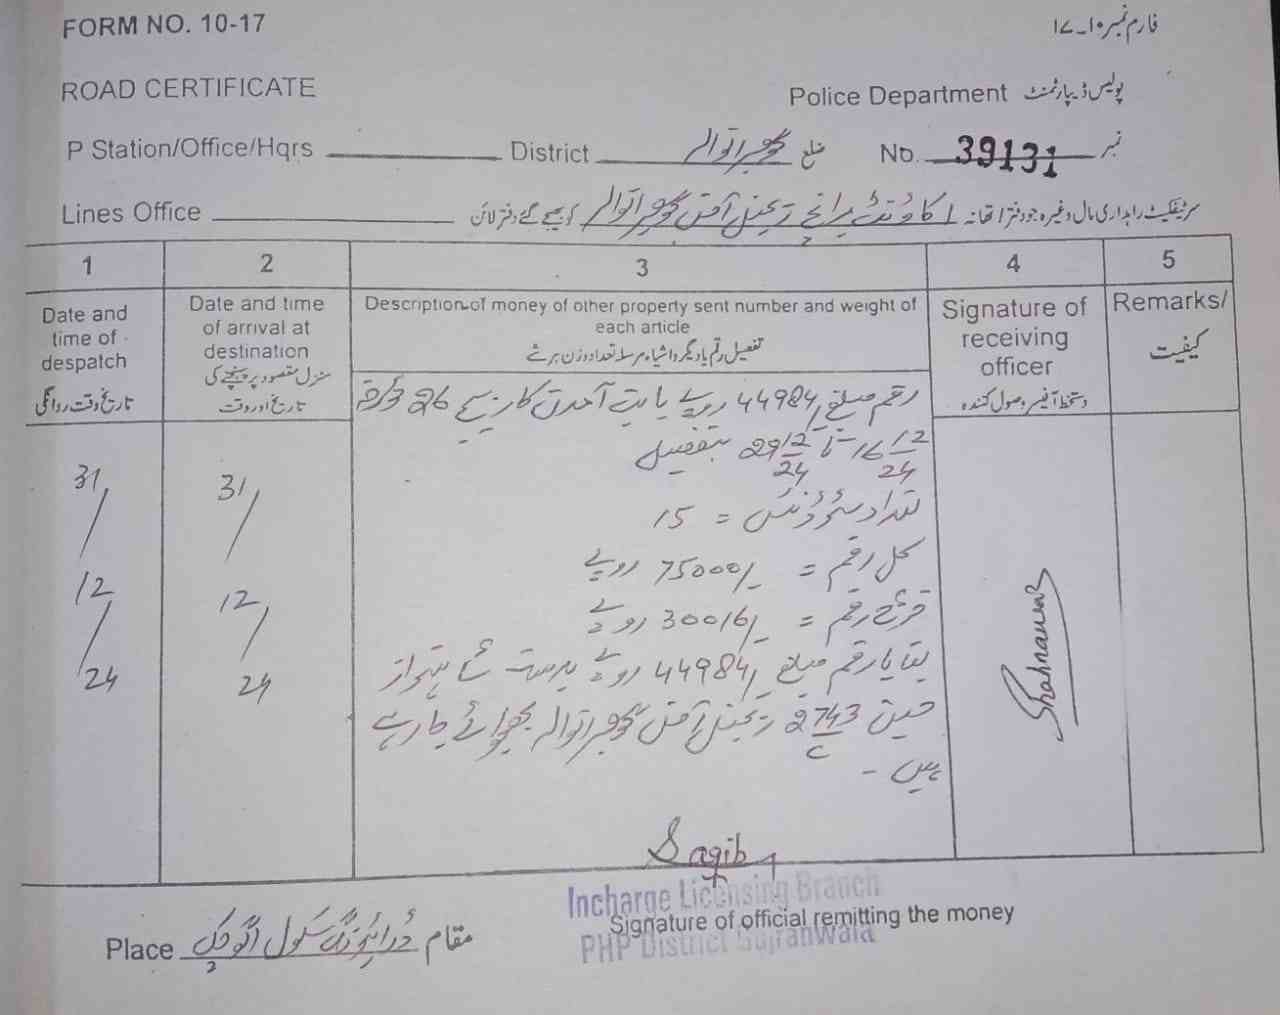 FORM NO. 10-17 فارم نمبر ۱۰۔۱۷
ROAD CERTIFICATE
Police Department پولیس ڈیپارٹمنٹ
P Station/Office/Hqrs District ضلع گوجرانوالہ No. 39131 نمبر
Lines Office سرٹیفکیٹ راہداری مال وغیرہ جو دفتر / تھانہ اکاونٹ برانچ ریجنل آفس گوجرانوالہ کو بھیجے گئے دفتر لائن
1 2 3 4 5
Date and time of despatch
تاریخ وقت روانگی
Date and time of arrival at destination
منزل مقصود پر پہنچنے کی تاریخ اور وقت
Description of money of other property sent number and weight of each article
تفصیل رقم یا دیگر اشیاء مرسلہ تعداد وزن ہر شے
Signature of receiving officer
دستخط آفیسر وصول کنندہ
Remarks/
کیفیت
31/12/24
31/12/24
رقم مبلغ 44984/ روپے بابت آمدن کار 26
16 12/24 تا 29 12/24 بتفصیل
تعداد سٹوڈنٹس = 15
کل رقم = 75000/- روپے
خرچ رقم = 30016/- روپے
بقایا رقم مبلغ 44984/- روپے بدست
حسین 2743/C ریجنل آفس گوجرانوالہ بھجوائے جا رہے
ہیں -
Shahnawaz
Saqib
Incharge Licensing Branch
Signature of official remitting the money
PHP District Gujranwala
Place مقام ڈرائیونگ سکول